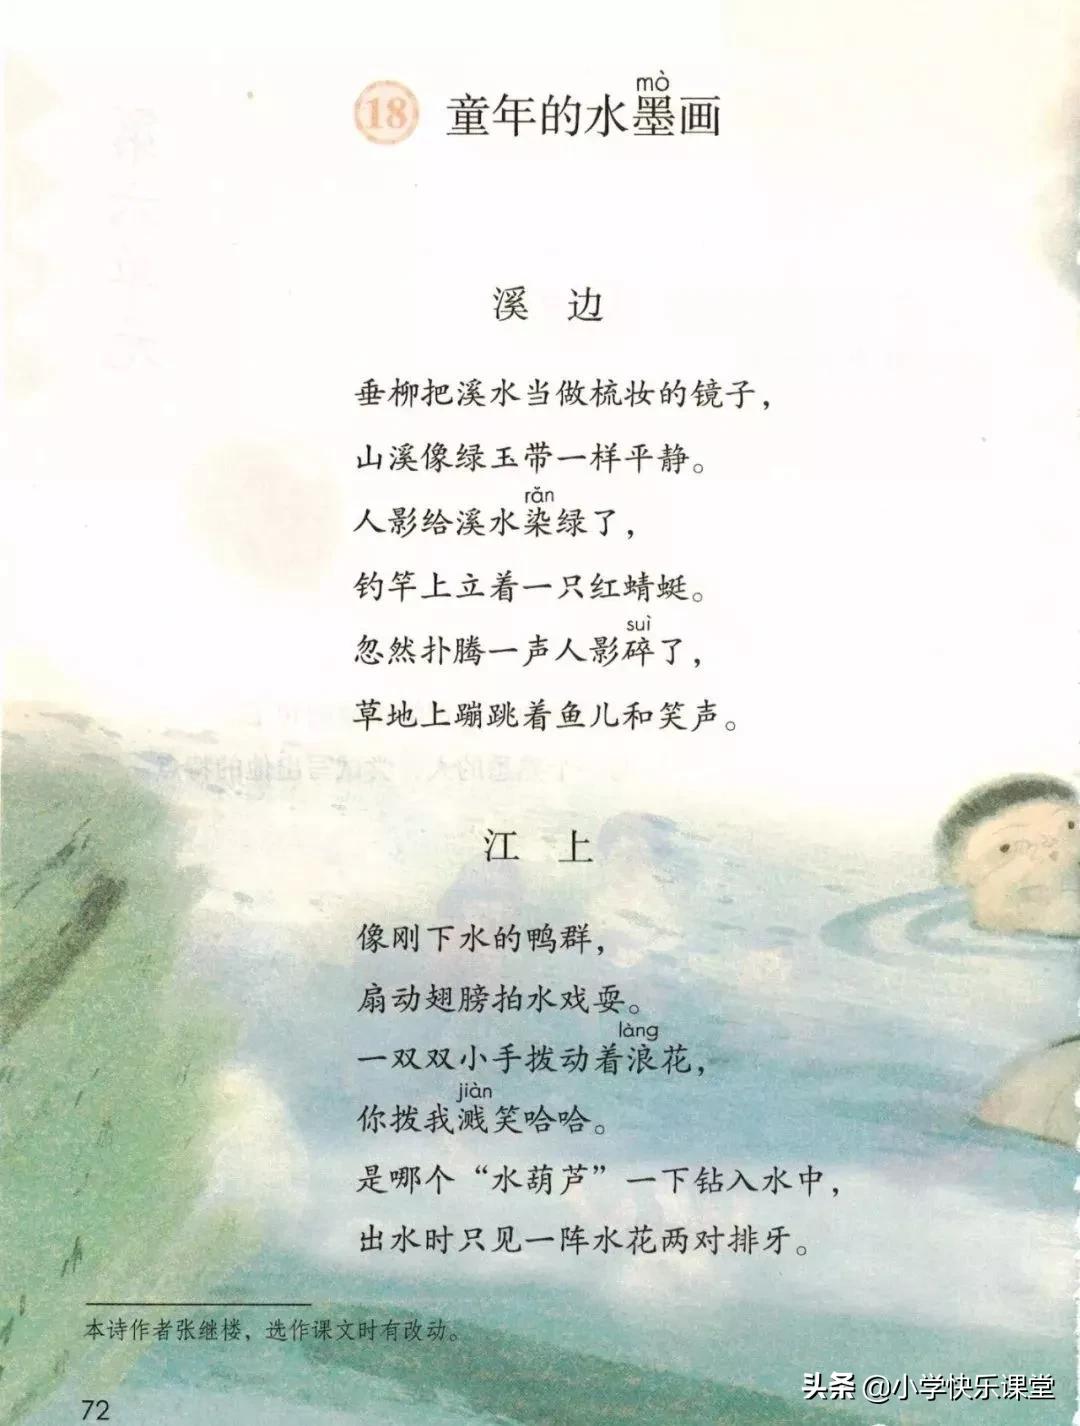 mò
18 童年的水墨画
溪 边
垂柳把溪水当做梳妆的镜子，
山溪像绿玉带一样平静。
rǎn
人影给溪水染绿了，
钓竿上立着一只红蜻蜓。
suì
忽然扑腾一声人影碎了，
草地上蹦跳着鱼儿和笑声。
江 上
像刚下水的鸭群，
扇动翅膀拍水戏耍。
làng
一双双小手拨动着浪花，
jiàn
你拨我溅笑哈哈。
是哪个“水葫芦”一下钻入水中，
出水时只见一阵水花两对排牙。
本诗作者张继楼，选作课文时有改动。
72
头条 @小学快乐课堂